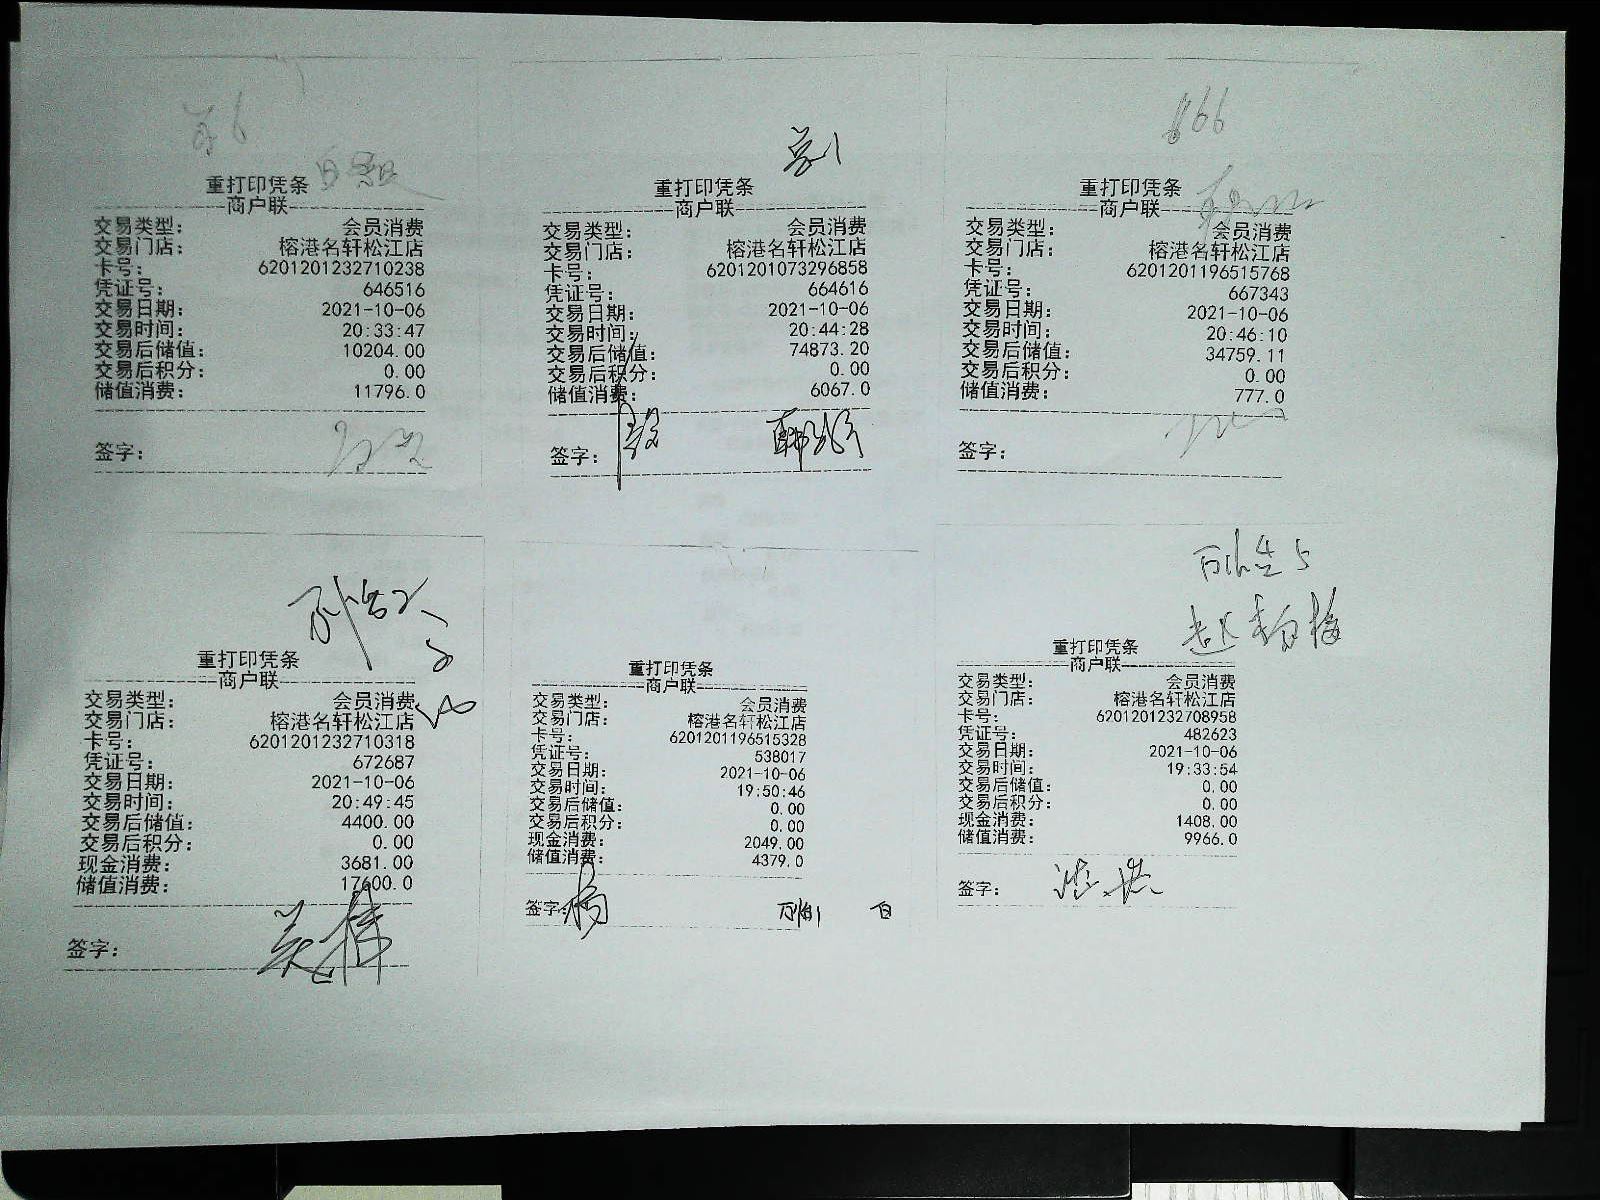 重打印凭条
商户联
交易类型： 会员消费
交易门店： 榕港名轩松江店
卡号： 6201201232710238
凭证号： 646516
交易日期： 2021-10-06
交易时间： 20:33:47
交易后储值： 10204.00
交易后积分： 0.00
储值消费： 11796.0
签字：
重打印凭条
商户联
交易类型： 会员消费
交易门店： 榕港名轩松江店
卡号： 6201201073296858
凭证号： 664616
交易日期： 2021-10-06
交易时间： 20:44:28
交易后储值： 74873.20
交易后积分： 0.00
储值消费： 6067.0
签字：
666
重打印凭条
商户联
交易类型： 会员消费
交易门店： 榕港名轩松江店
卡号： 6201201196515768
凭证号： 667343
交易日期： 2021-10-06
交易时间： 20:46:10
交易后储值： 34759.11
交易后积分： 0.00
储值消费： 777.0
签字：
重打印凭条
商户联
交易类型： 会员消费
交易门店： 榕港名轩松江店
卡号： 6201201232710318
凭证号： 672687
交易日期： 2021-10-06
交易时间： 20:49:45
交易后储值： 4400.00
交易后积分： 0.00
现金消费： 3681.00
储值消费： 17600.0
签字：
重打印凭条
商户联
交易类型： 会员消费
交易门店： 榕港名轩松江店
卡号： 6201201196515328
凭证号： 538017
交易日期： 2021-10-06
交易时间： 19:50:46
交易后储值： 0.00
交易后积分： 0.00
现金消费： 2049.00
储值消费： 4379.0
签字：
重打印凭条
商户联
交易类型： 会员消费
交易门店： 榕港名轩松江店
卡号： 6201201232708958
凭证号： 482623
交易日期： 2021-10-06
交易时间： 19:33:54
交易后储值： 0.00
交易后积分： 0.00
现金消费： 1408.00
储值消费： 9966.0
签字：